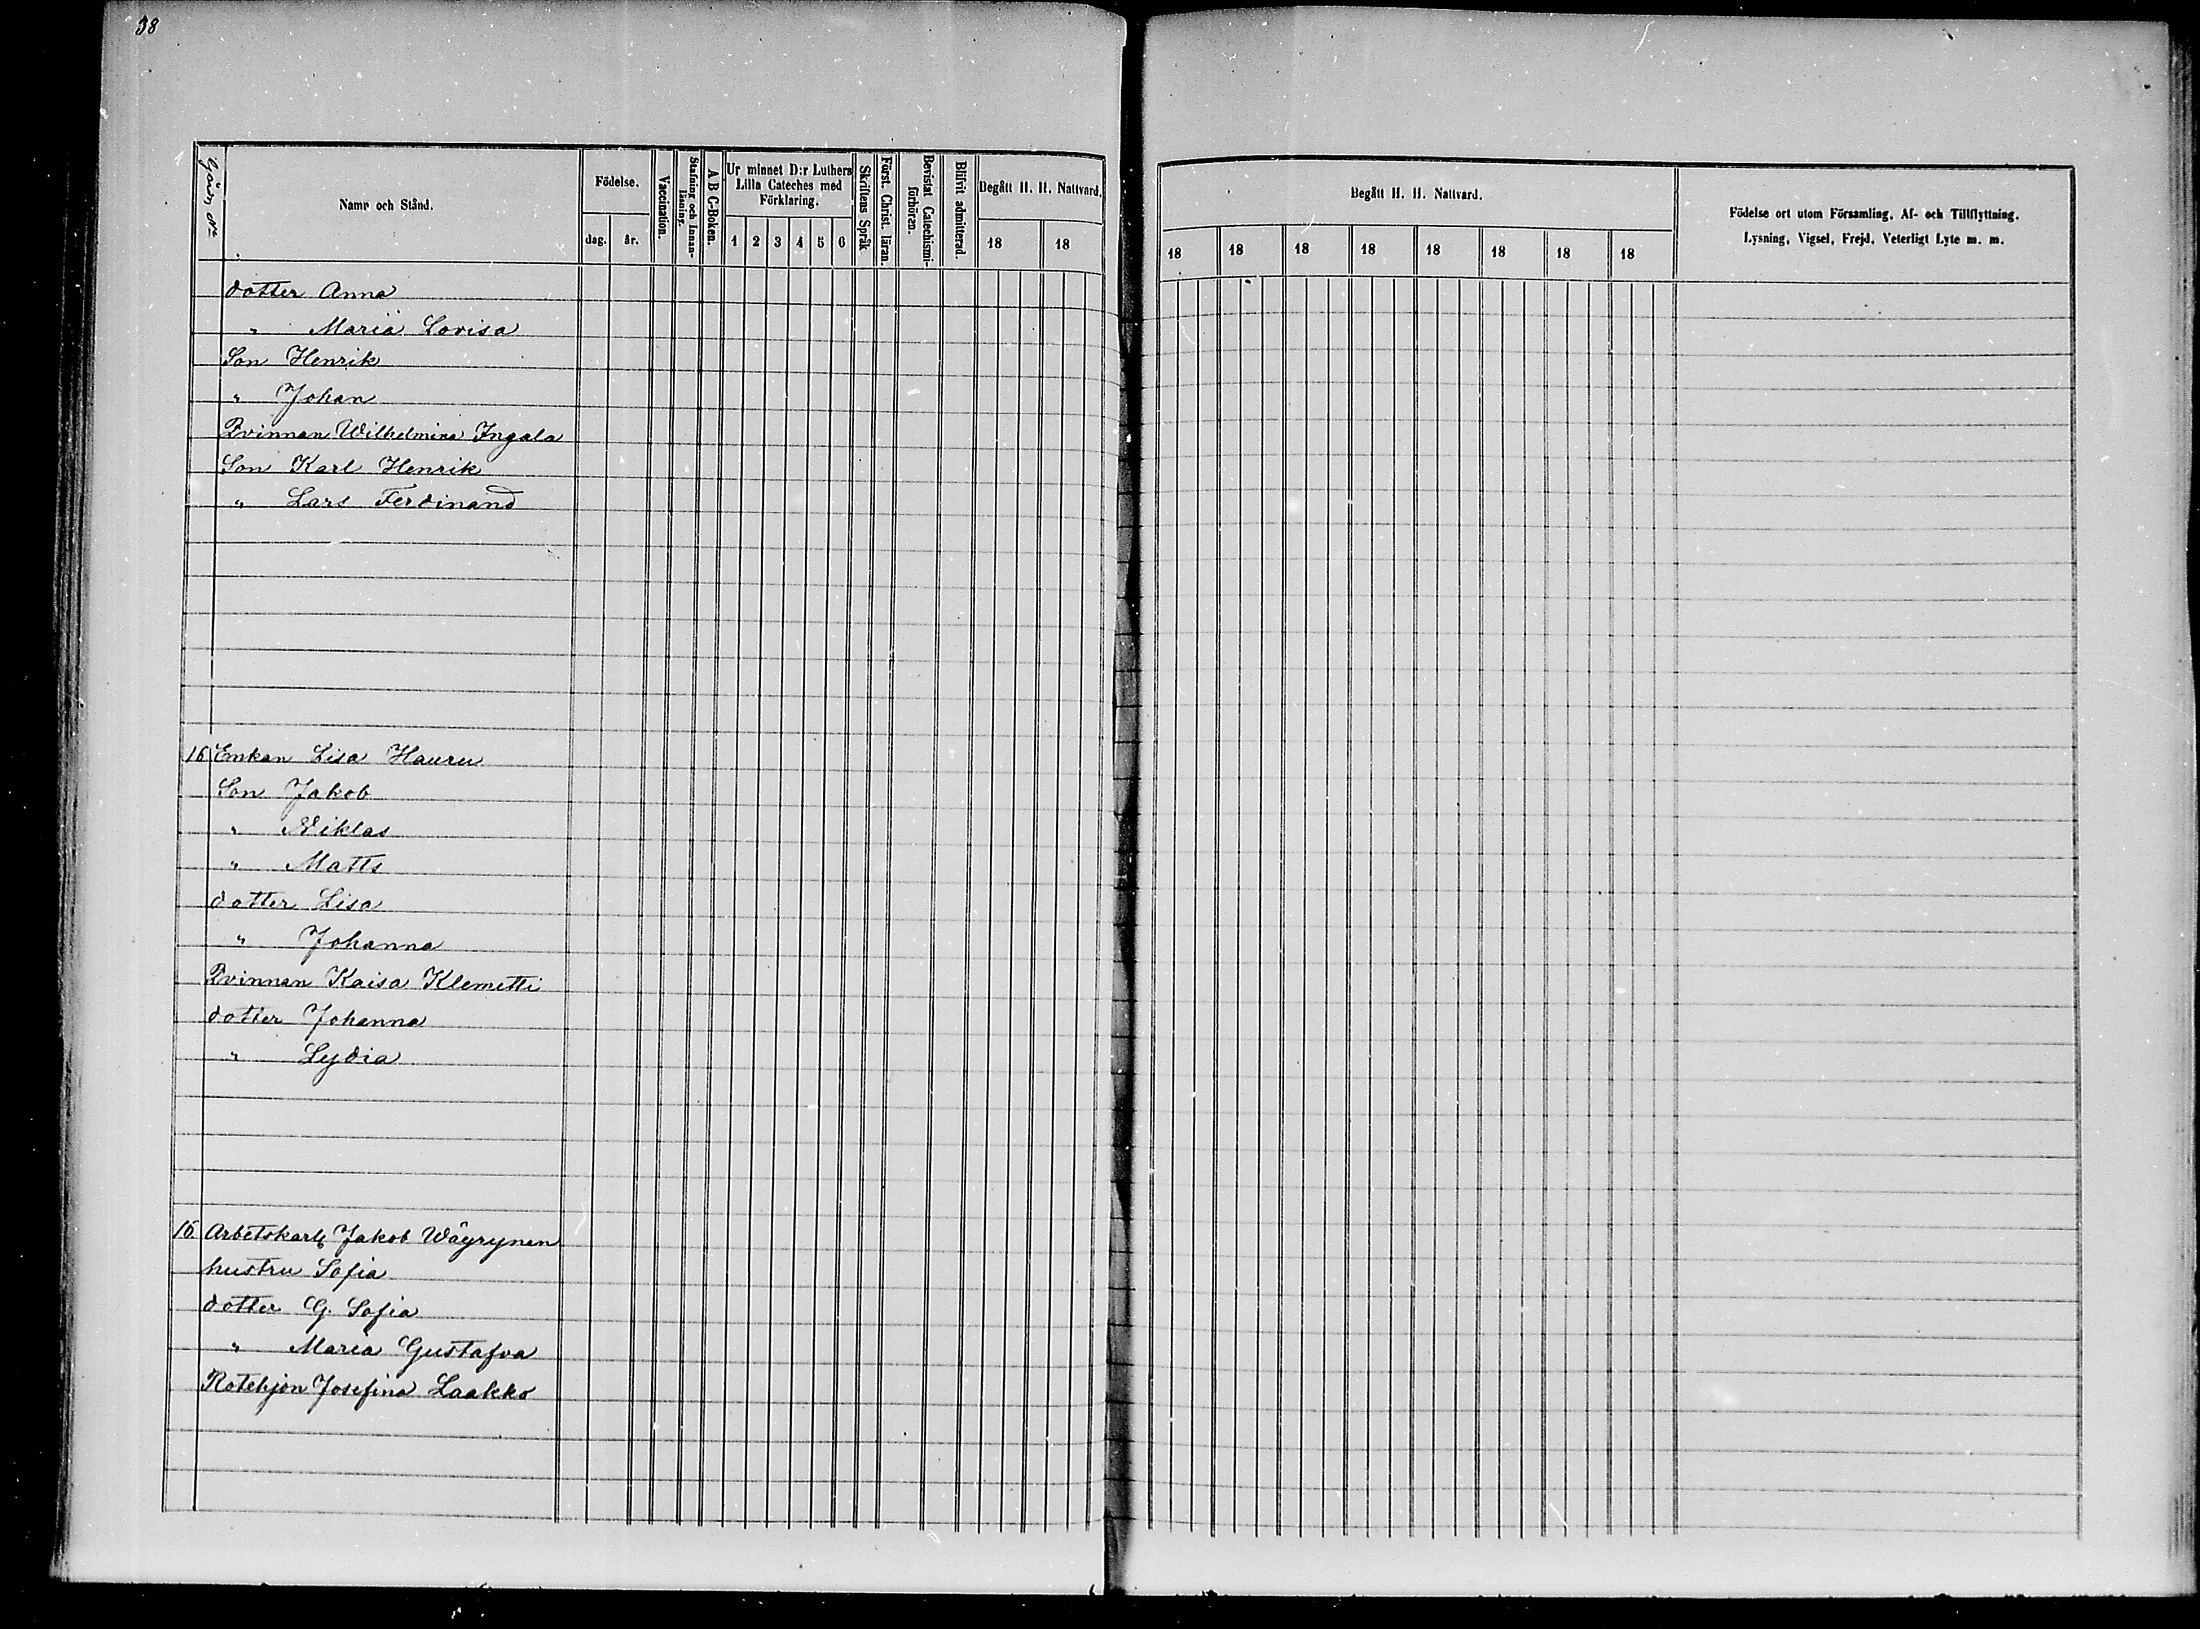 38
Gårds No
Namn och Stånd.
Födelse.
dag.
år.
Vaccination.
Stafning och Innan-
läsning.
A B C-Boken.
Ur minnet D:r Luthers
Lilla Cateches med
Förklaring.
1 2 3 4 5 6
Skriftens Språk
Först. Christ. läran.
Bevistat Catechismi-
förhören.
Blifvit admitterad.
Begått H. H. Nattvard.
18 18
Begått H. H. Nattvard.
18 18 18 18 18 18 18 18
Födelse ort utom Församling, Af- och Tillflyttning.
Lysning, Vigsel, Frejd, Veterligt Lyte m. m.
dotter Anna
" Maria Lovisa
Son Henrik
" Johan
Qvinnan Wilhelmina Ingala
Son Karl Henrik
" Lars Ferdinand
16 Enkan Lisa Hauru
Son Jakob
" Niklas
" Matts
dotter Lisa
" Johanna
Qvinnan Kaisa Klemetti
dotter Johanna
" Lydia
16 Arbetskarl Jakob Wäyrynen
hustru Sofia
dotter G. Sofia
" Maria Gustafva
Rotehjon Josefina Laakko